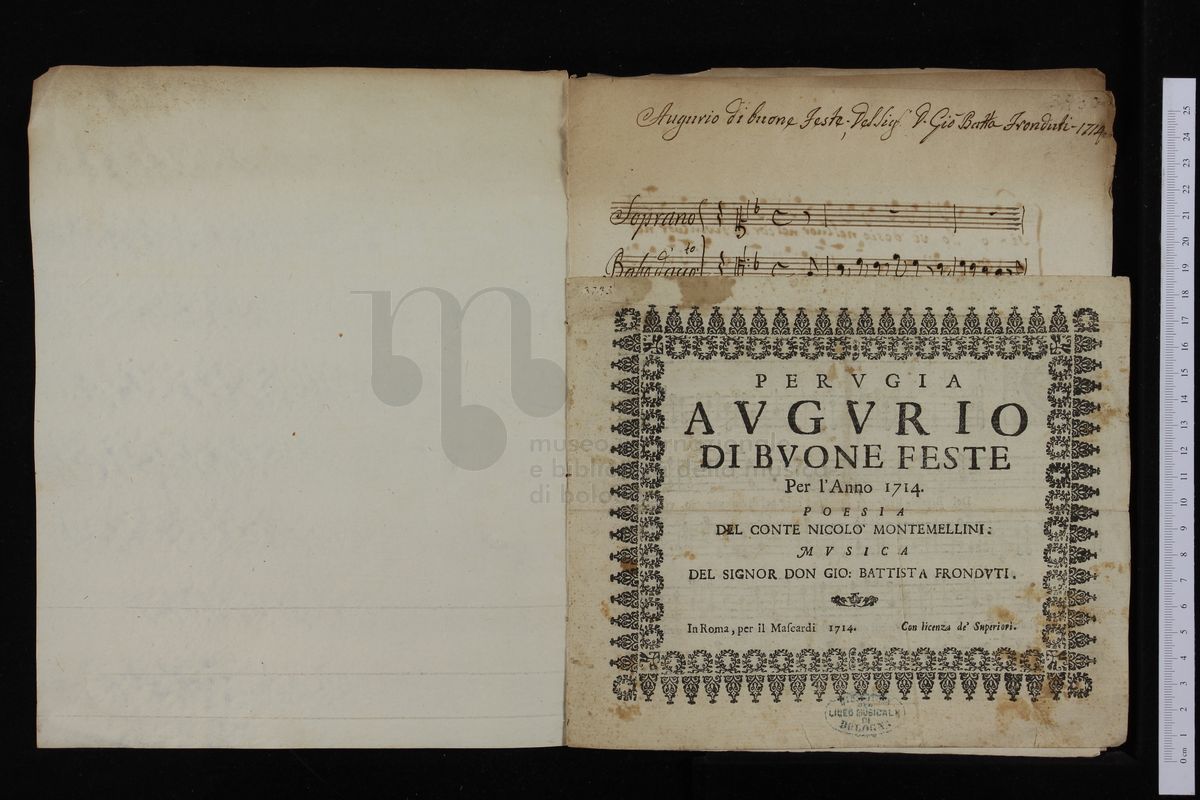 Augurio di buone Feste, Del Sig.r D. Gio Batta Fronduti - 1714
Soprano
3735
PERVGIA
AVGVRIO
DI BVONE FESTE
Per l'Anno 1714.
POESIA
DEL CONTE NICOLO' MONTEMELLINI.
MVSICA
DEL SIGNOR DON GIO: BATTISTA FRONDVTI.
In Roma, per il Mascardi 1714. Con licenza de' Superiori.
LICEO MUSICALE
DI
BOLOGNA
museo internazionale
e biblioteca della musica
di bologna
0 cm 1 2 3 4 5 6 7 8 9 10 11 12 13 14 15 16 17 18 19 20 21 22 23 24 25